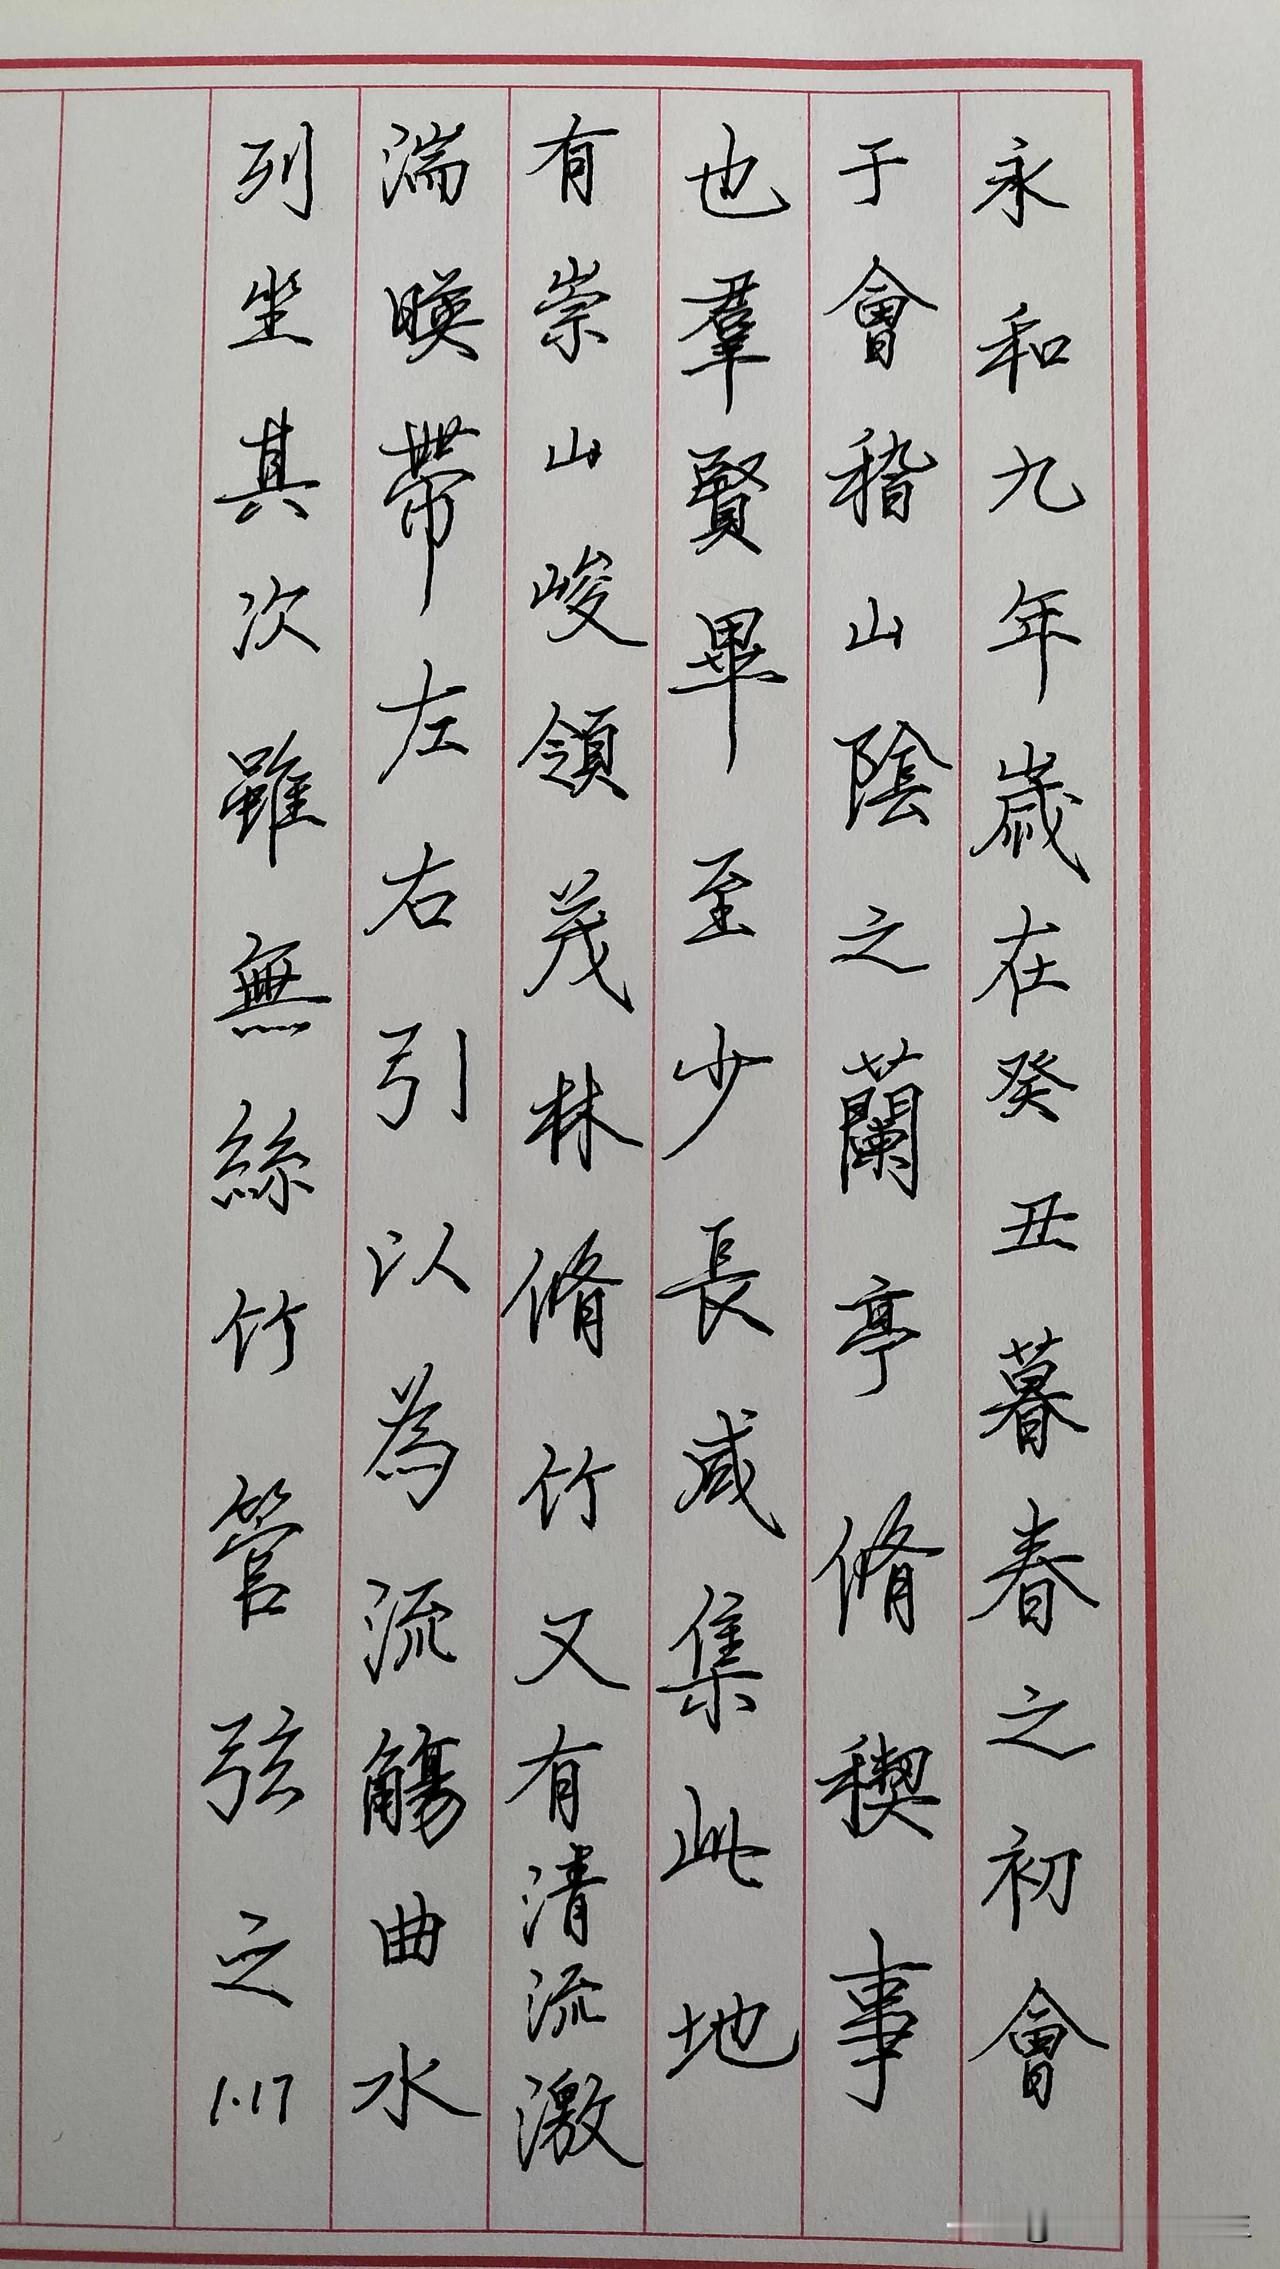 永和九年歲在癸丑暮春之初會
于會稽山陰之蘭亭脩稧事
也羣賢畢至少長咸集此地
有崇山峻領茂林脩竹又有清流激
湍暎帶左右引以為流觴曲水
列坐其次雖無絲竹管弦之
1.17